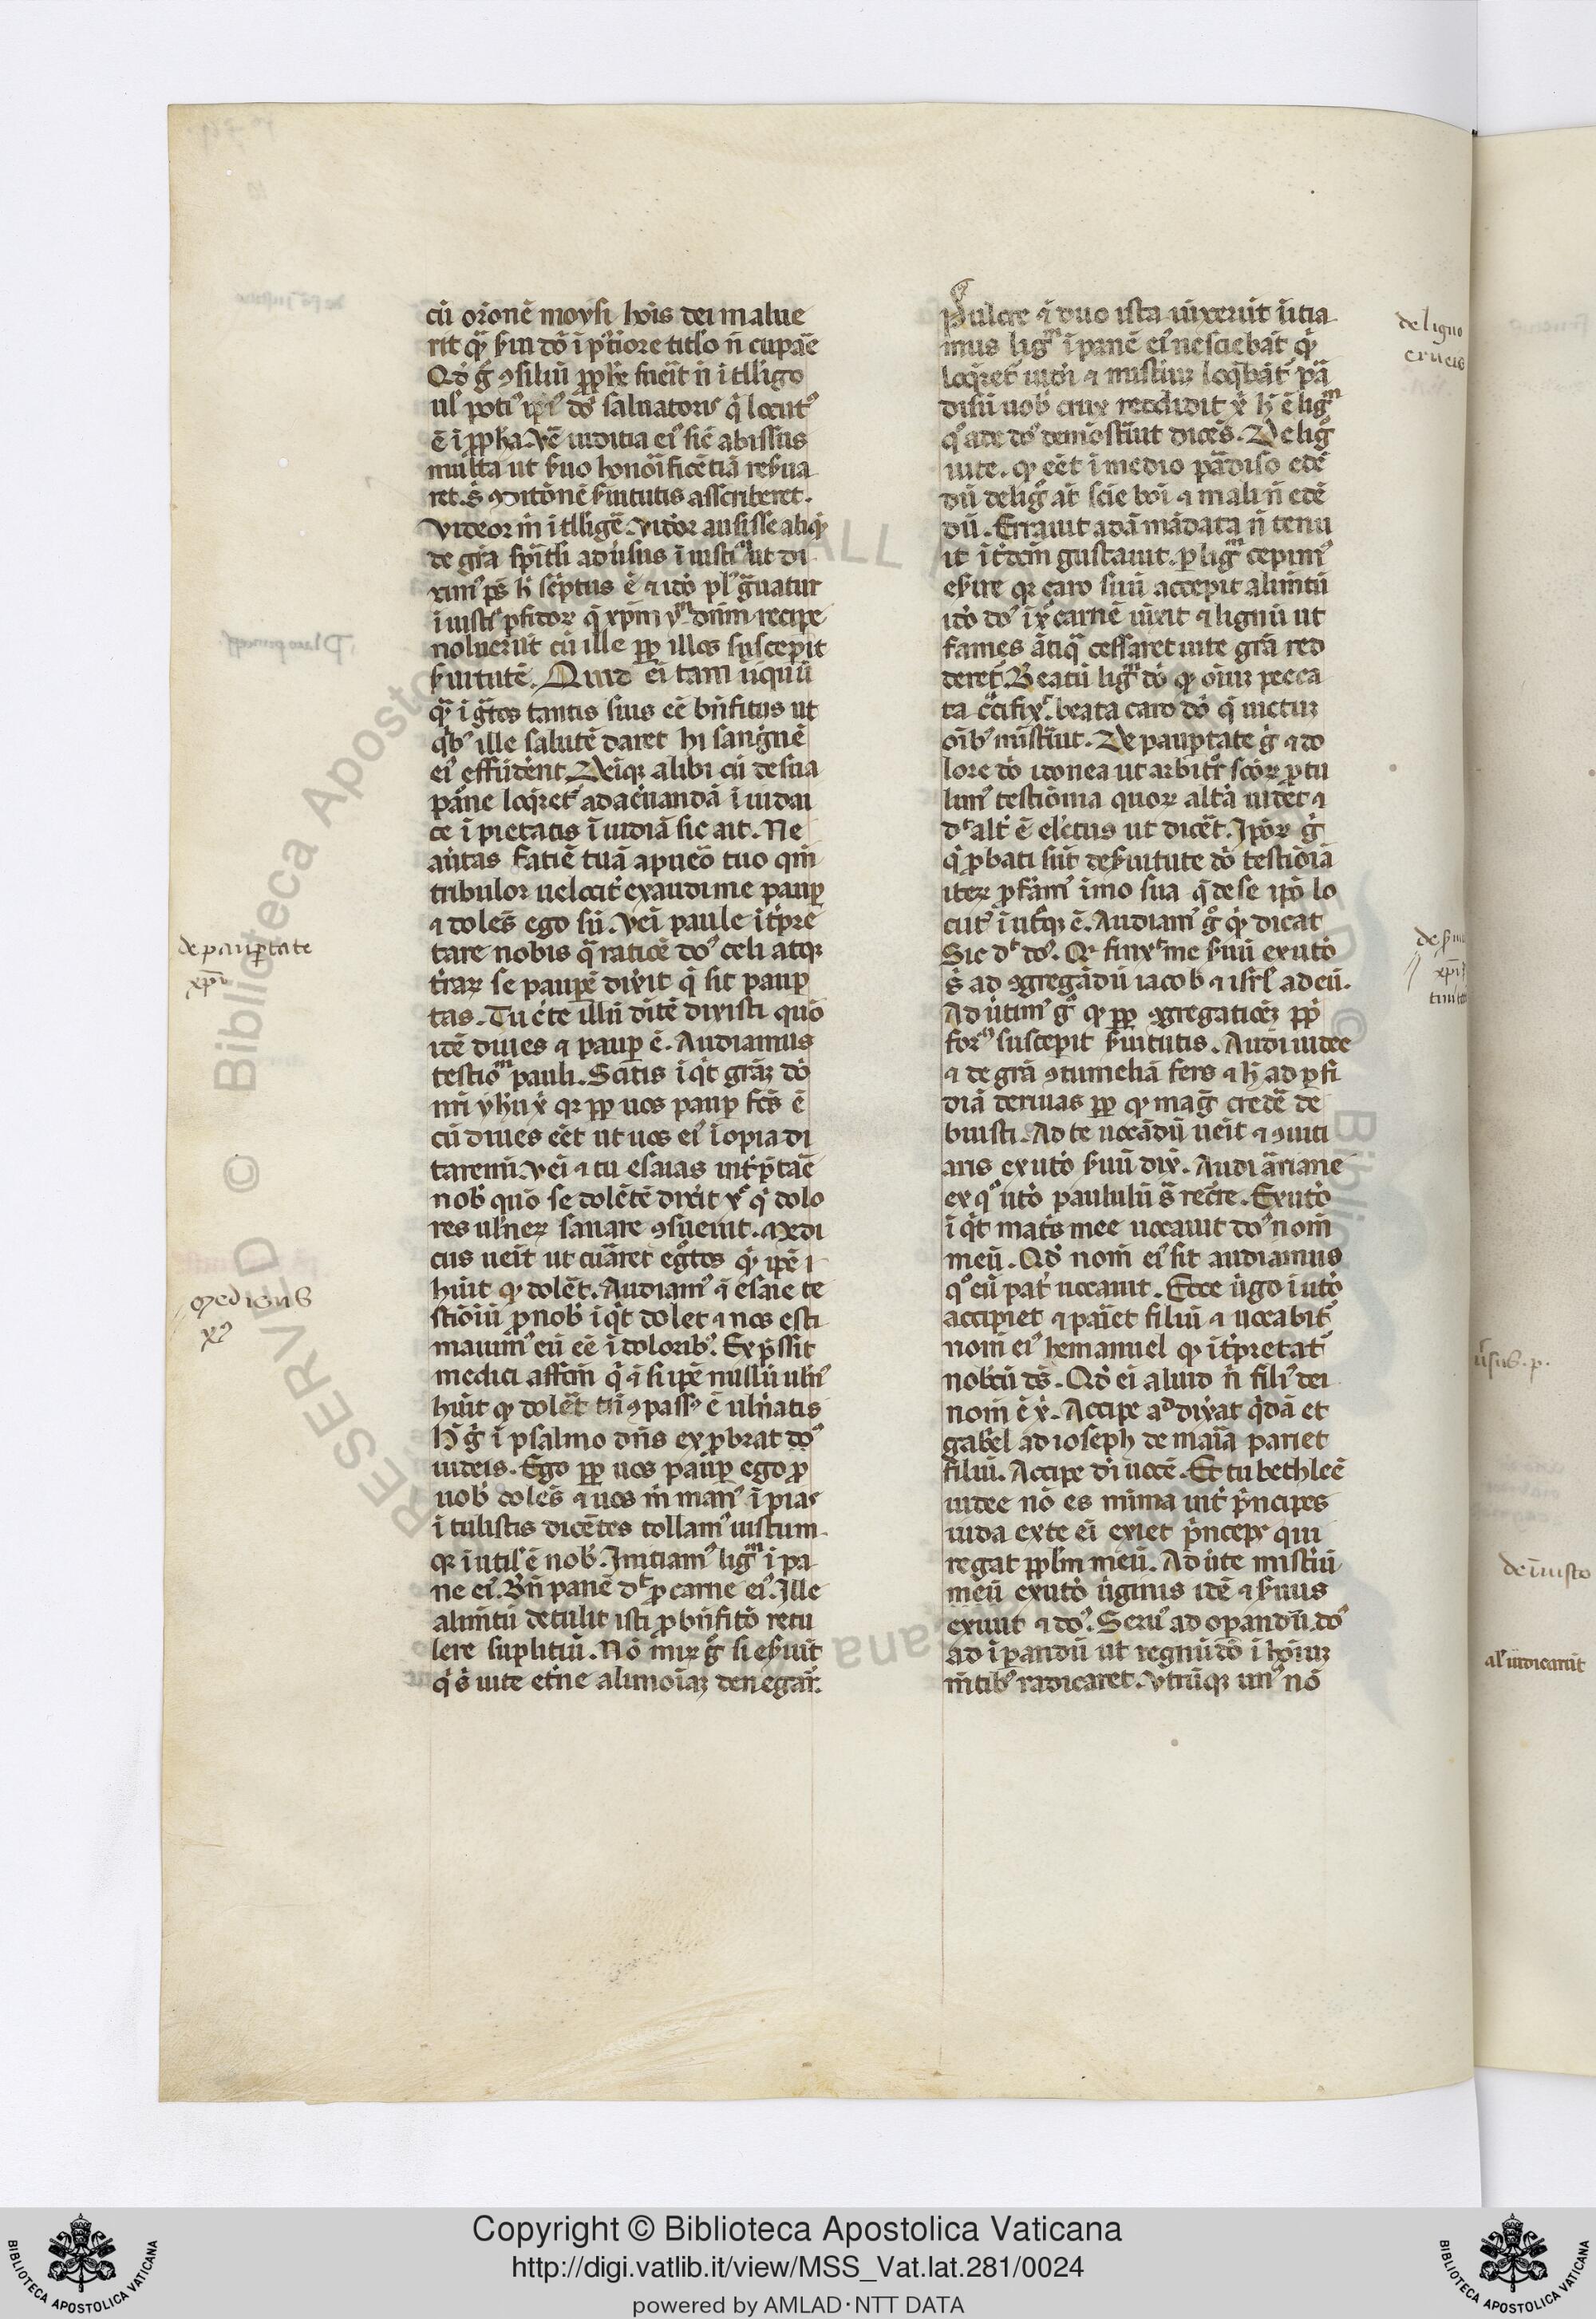 cū orōnē moysi hoīs dei malue
rit qͣ ẜui dō ī ꝑtiore titlo n̄ cupaē
Qd̓ gͦ ꝯsiliū ꝓphe fueīt n̄ ītlligo
ul̓ poti᷒ ipī᷒ dō saluatoris q̓ locut᷒
ē ī ꝓpħa. Vē iuditia ei᷒ sic̄ abissus
multa ut ẜuo honoīficētiā reẜua
ret. s̓ ꝯditōnē ẜuitutis asscriberet.
Videor m̄ ītlligē. Vidor ausisse aliq̓
de grā sp̄itli adūsus ī iusti ut di
xim᷒ ps̄ h̓ sc̓ptus ē ⁊ idō pl᷒ grauatur
ī iusti ꝑfidor q̓ xp̄m ỹ dn̄m recipe
noluerūt cū ille ꝓp illos suscepit
ẜuitutē. Quid ei tam iīquū
qͣ ī gͣtos tantis suis eē bn̄fitus ut
q̓b᷒ ille salutē daret hi sanguē
ei᷒ effūdent. Deiqꝫ alibi cū de sua
pāne loq̄ret᷒ ad aēuandā ī iudai
ce ī pietatis ī iudiā sic ait. Ne
aūtas fatiē tuā a pueō tuo qm̄
tribulor uelocit̓ exaudi me paup
⁊ dolēs ego sū. Vei paule ītp̄re
tare nobis qͣ ratiōē do᷒ celi atqꝫ
t̓raꝝ se paupē dix̓it q̓ sit paup
tas. Tu c̓te illū dītē dixisti quō
idē diues ⁊ paup ē. Audiamus
testio pauli. Scitis iq̓t grāꝫ dō
nr̄i yħu x̓ qꝛ ꝓp uos paup fc̄s ē
cū diues eēt ut uos ei᷒ īopia di
taremi᷒. Vei ⁊ tu esaias īt̓p̄taē
nob̓ quō se dolētē dixit x᷒ q̓ dolo
res ulneꝝ sanare ꝯsueuit. Medi
cus ueīt ut cuāret eg̓tos q̓ ipē ī
huīt qͥ dolēt. Audiam᷒ ⁊ esaie te
stiōiū ꝓ nob̓ iq̓t dolet ⁊ nos esti
mauim᷒ eū eē ī dolorib᷒. Exp̄ssit
medici affcm̄ q̓ ⁊ si ipē nullū uln᷒
huīt qͥ dolēt tn̄ ꝯpass᷒ ē ulnatis
H̄ g̓ ī psalmo dn̄s exꝓbrat do᷒
iudeis. Ego ꝓp uos paup ego ꝓ
uob̓ dolēs ⁊ uos m̄ man᷒ īpias
ī tulistis dicētes tollam᷒ iustum
qꝛ īutil᷒ ē nob̓. Imtiam᷒ lig̓ ī pa
ne ei᷒. Bn̄ panē dt̓ ꝓ carne ei᷒. Ille
alimtū detulit isti ꝓ bn̄fitō retu
lere suplitiū. Nō mirꝝ g̓ si eẜuīt
q̓ s̓ uite et̓ne alimoiaꝫ denegar̄.
de pauꝑtate
xp̄i
Medicus
xc̄
Pulcre ⁊ duo ista iūxerūt īitia
mus lig̓ ī panē ei᷒ nesciebāt q̓
loq̄ret᷒ iudi ⁊ mistiū loq̓bāt᷒ pͣa
disū uob̓ crux reddidit x̓ h̓ ē lig̓
q᷒ ade do᷒ demōstuīt dicēs. De lig̓
uite. qͥ eēt ī medio pͣadiso edē
dū de lig̓ at̓ scie boi ⁊ mali n̄ edē
dū. Erauit adā mādata n̄ tenu
it īt̓dcm̄ gustauit. ꝑ lig̓ cepim᷒
eẜire qꝛ caro suū accepit alimtū
idō do᷒ ī x᷒ carnē iūxit ⁊ lignū ut
fames ātiqͣ cessaret uite grā red
deret. Beatū lig̓ dō qͥ oīuꝫ pecca
ta cc̄ifix᷒. beata caro dō q̓ uictuꝫ
oīb᷒ mistuīt. De pauꝑtate g̓ ⁊ do
lore dō idonea ut arbitr̓ scōꝝ ꝓtu
lim᷒ testiōnia quoꝝ alt̓a uidēt ⁊
dt̓ alt̓ ē electus ut dicet. Ipōꝝ g̓
q̓ ꝓbati sūt de ẜuitute dō testiōiā
iteꝝ ꝓfam᷒ īmo sua q̓ de se ipō lo
cut᷒ ī ut̓qꝫ ē. Audiam᷒ g̓ q̓ dicat
Sic dt̓ do᷒. Qꝛ finx᷒ me ẜuū ex utō
s̓ ad ꝯgregādū iacob ⁊ isrl̓ ad eū.
Adūtim᷒ g̓ qͥ ꝓp ꝯgregatiōeꝫ ꝓp
for᷒ suscepit ẜuitutis. Audi iudee
⁊ de grā ꝯtumeliā fers ⁊ h̓ ad ꝑfi
diā deriuas ꝓp qͥ mag̓ crede de
buisti. Ad te uocādū ueīt ⁊ ꝯuiti
aris ex utō ẜuū dix̓. Audi āriane
ex q᷒ utō paululū s̓ recr̄e. Ex utō
iq̓t mat̓s mee uocauit do᷒ nom̄
meū. Qd̓ nom̄ ei᷒ sit audiamus
q᷒ eū pat̓ uocauit. Ecce ūgo ī utō
accipiet ⁊ paīet filiū ⁊ uocabit᷒
nom̄ ei᷒ hemanuel qͥ īt̓pretat᷒
nobcū ds̄. Qd̓ ei aluid n̄ fili᷒ dei
nom̄ ē x̓. Accipe a dix̓at q̓dā et
gabel ad ioseph de maīa pariet
filiū. Accipe di uocē. Et tu bethleē
iudee nō es mīma īt̓ pͥncipes
iuda ex te ei exiet pͥnceps qui
regat ꝓplm̄ meū. Adūte mistiū
meū ex utō ūginis idē ⁊ ẜuus
exiuit ⁊ do᷒. Seru᷒ ad oꝑandū do᷒
ad īꝑandū ut regnū dō ī hoīuꝫ
m̄tib᷒ radicaret. Vtrūqꝫ un᷒ nō
de ligno
crucis
de ẜui
xp̄i
ūsus. p.
de īiusto
al᷒ iudicarūt
Copyright © Biblioteca Apostolica Vaticana
http://digi.vatlib.it/view/MSS_Vat.lat.281/0024
powered by AMLAD·NTT DATA
BIBLIOTECA APOSTOLICA VATICANA
BIBLIOTECA APOSTOLICA VATICANA